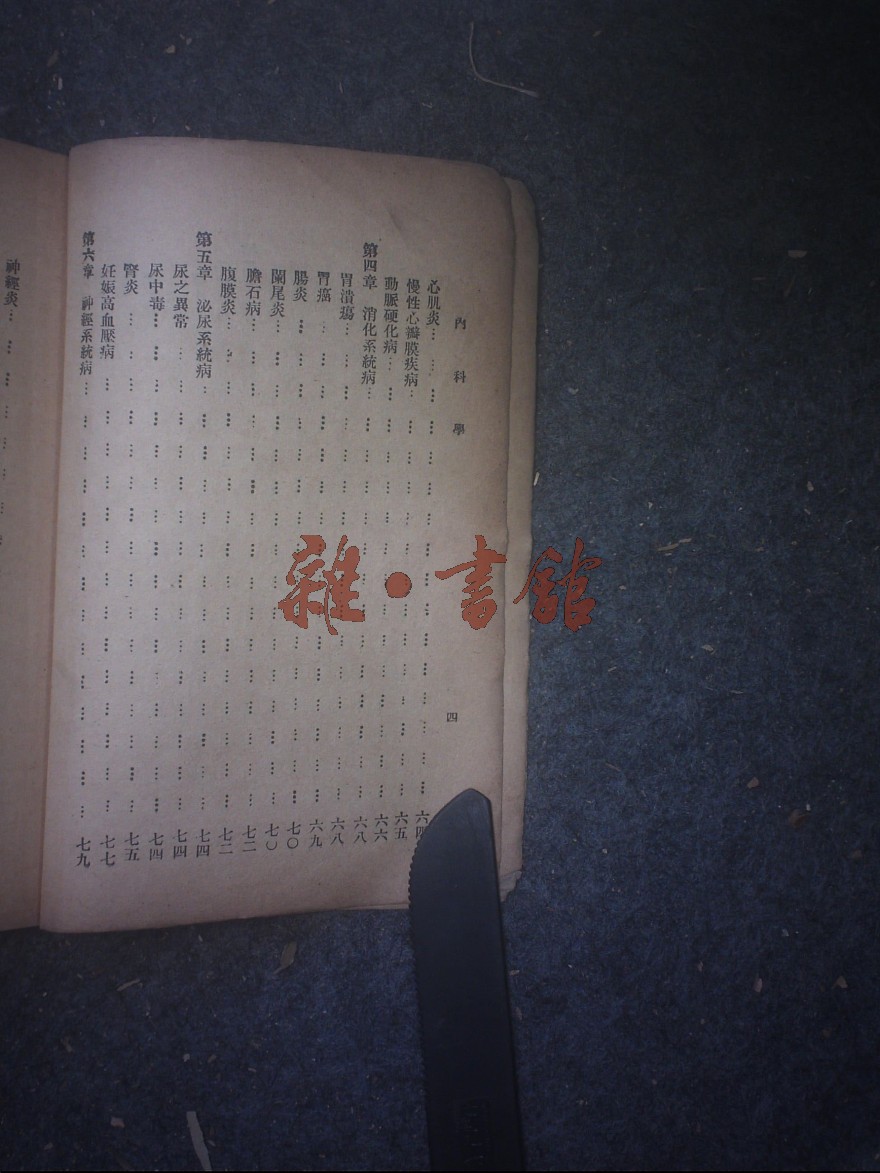 內科學
四
心肌炎……………………………六四
慢性心瓣膜疾病……………………………六五
動脈硬化病……………………………六六
第四章 消化系統病……………………………六八
胃潰瘍……………………………六八
胃癌……………………………六九
腸炎……………………………七〇
闌尾炎……………………………七〇
膽石病……………………………七二
腹膜炎……………………………七二
第五章 泌尿系統病……………………………七四
尿之異常……………………………七四
尿中毒……………………………七四
腎炎……………………………七五
妊娠高血壓病……………………………七七
第六章 神經系統病……………………………七九
神經炎……………………………
雜·書館